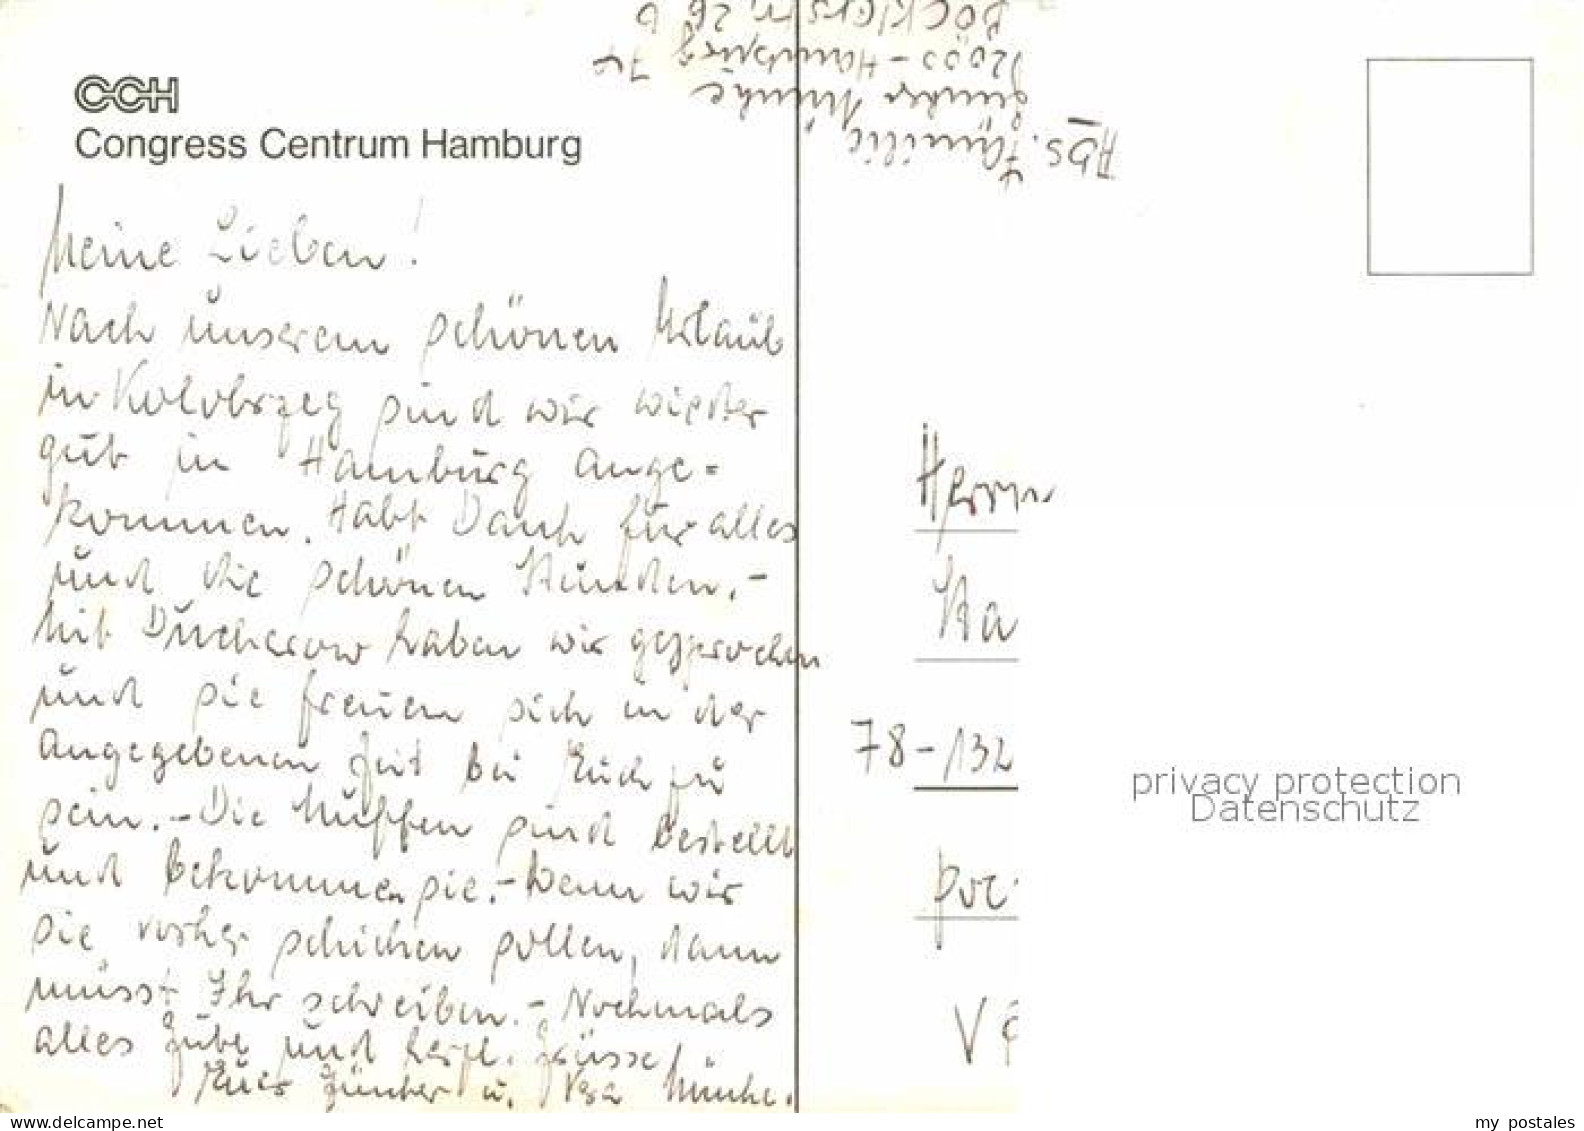 CCH
Congress Centrum Hamburg
Abs. Familie
Günther Münke
2000 - Hamburg 76
Böcklerstr. 26
Meine Lieben!
Nach unserem schönen Urlaub
in Kolobrzeg sind wir wieder
gut in Hamburg ange=
kommen. Habt Dank für alles
und die schönen Stunden.-
Mit Ducherow haben wir gesprochen
und sie freuen sich in der
angegebenen Zeit bei Euch zu
sein.- Die Muffen sind bestellt
und bekommen sie.- Wenn wir
sie vorher schicken sollen, dann
müsst Ihr schreiben.- Nochmals
alles Gute und herzl. Grüsse
Euer Günther u. Münke.
Herrn
Sta
78-132
poc
privacy protection
Datenschutz
my postales